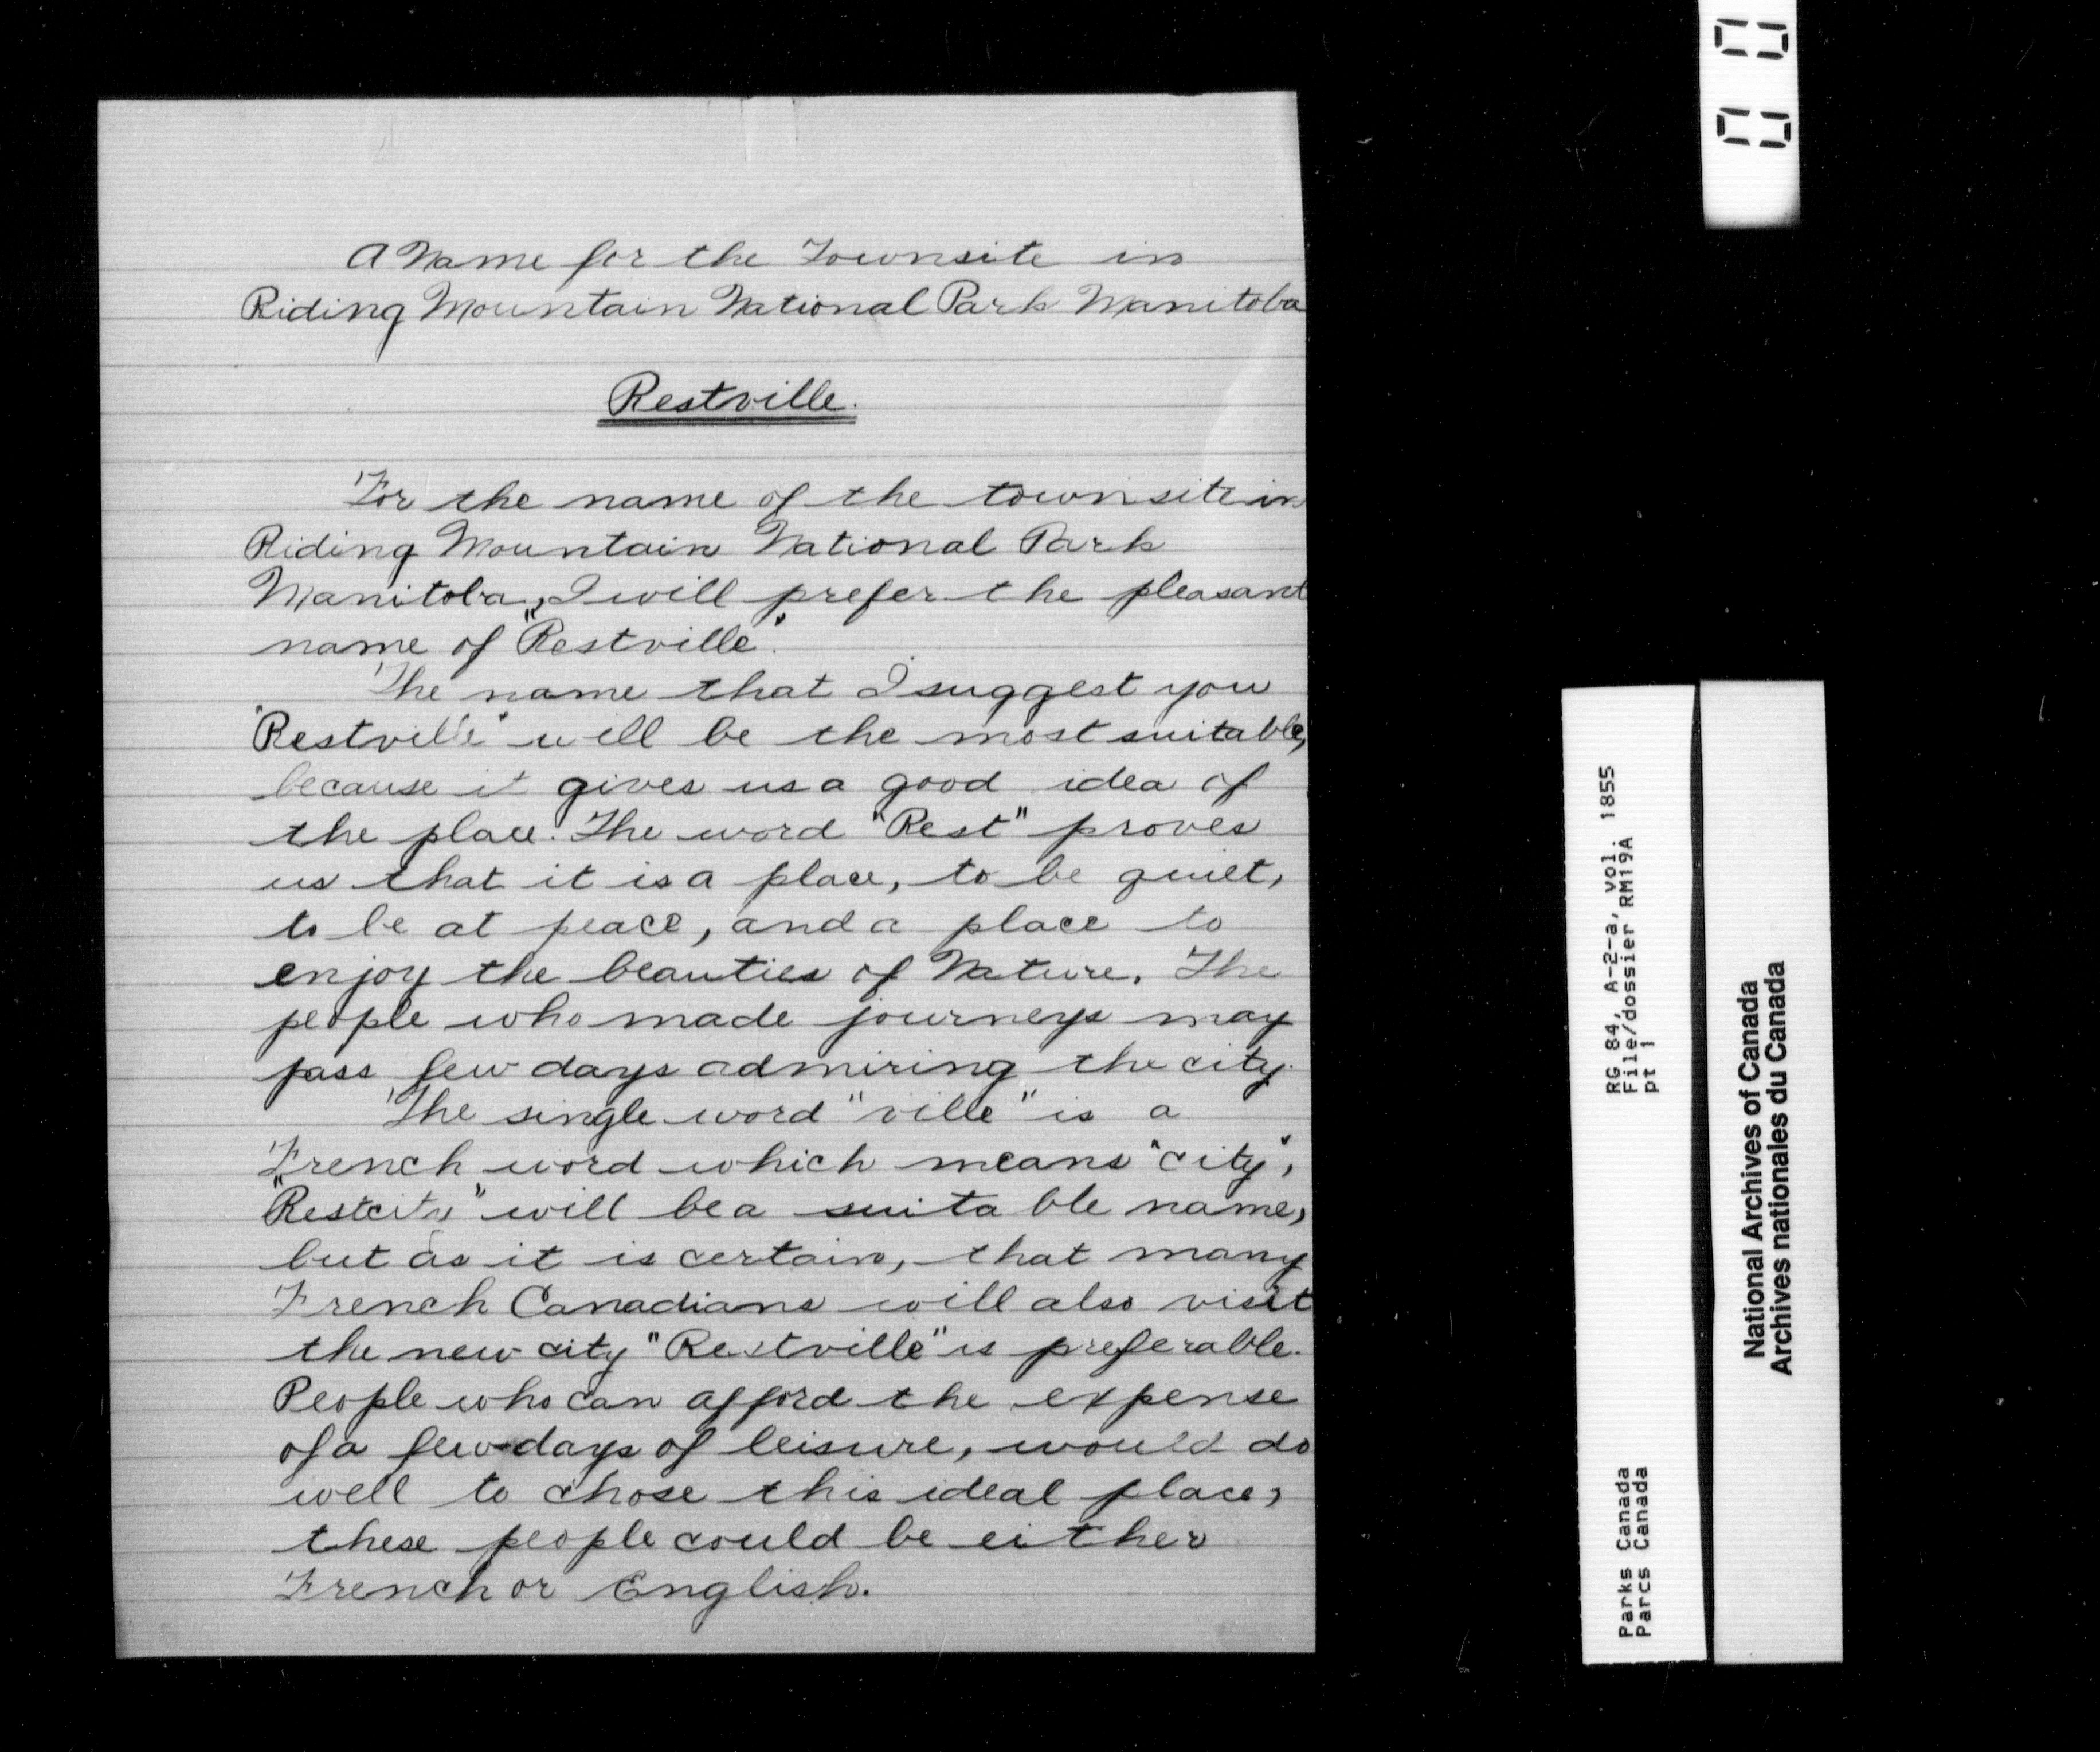 A Name for the Townsite in
Riding Mountain National Park Manitoba
Restville.
For the name of the townsite in
Riding Mountain National Park
Manitoba, I will prefer the pleasant
name of "Restville".
The name that I suggest you
"Restville" will be the most suitable,
because it gives us a good idea of
the place. The word "Rest" proves
us that it is a place, to be quiet,
to be at peace, and a place to
enjoy the beauties of Nature. The
people who made journeys may
pass few days admiring the city.
The single word "ville" is a
French word which means "city",
"Restcity" will be a suitable name,
but as it is certain, that many
French Canadians will also visit
the new city "Restville" is preferable.
People who can afford the expense
of a few days of leisure, would do
well to chose this ideal place,
these people could be either
French or English.
RG 84, A-2-a, vol. 1855
File/dossier RM19A
pt 1
Parks Canada
Parcs Canada
National Archives of Canada
Archives nationales du Canada